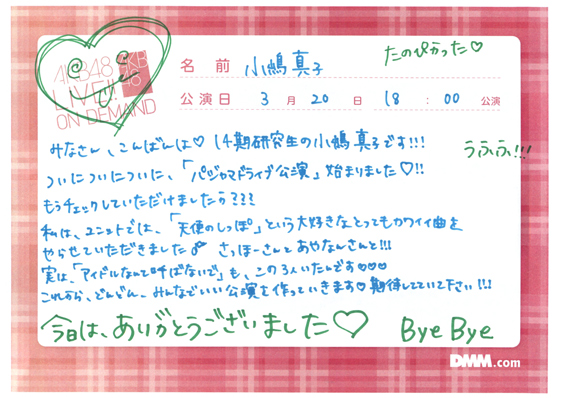 AKB48
LIVE!!
ON DEMAND
AKB
48
名前 小嶋真子
たのぴかった♡
公演日 3月20日 18:00 公演
みなさん、こんばんは♡ 14期研究生の小嶋真子です!!!
うふふ!!!
ついについについに、「パジャマドライブ公演」始まりました♡!!
もうチェックしていただけましたか???
私は、ユニットでは、「天使のしっぽ」という大好きなとってもカワイイ曲を
やらせていただきました♪ さっほーさんとあやなんさんと!!!
実は、「アイドルなんて呼ばないで」も、この3人いたんです♡♡♡
これから、どんどん、みんなでいい公演を作っていきます♡期待してていて下さい!!!
今日は、ありがとうございました♡ Bye Bye
DMM.com